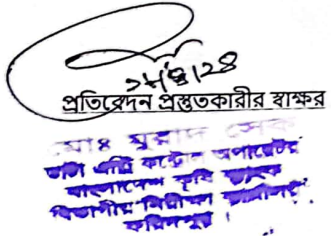 ২৮/৪/২৪
প্রতিবেদন প্রস্তুতকারীর স্বাক্ষর
মোঃ মুরাদ সেক
ডাটা এন্ট্রি কন্ট্রোল অপারেটর
বাংলাদেশ কৃষি ব্যাংক
বিভাগীয় নিরীক্ষা কার্যালয়
ফরিদপুর।